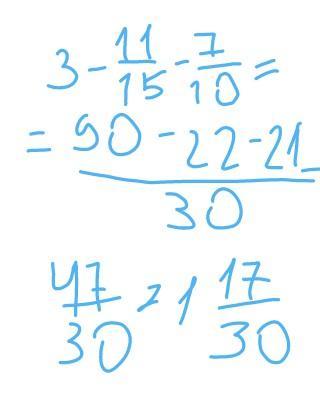 3 - 11/15 - 7/10 =
= (90 - 22 - 21)/30
47/30 = 1 17/30